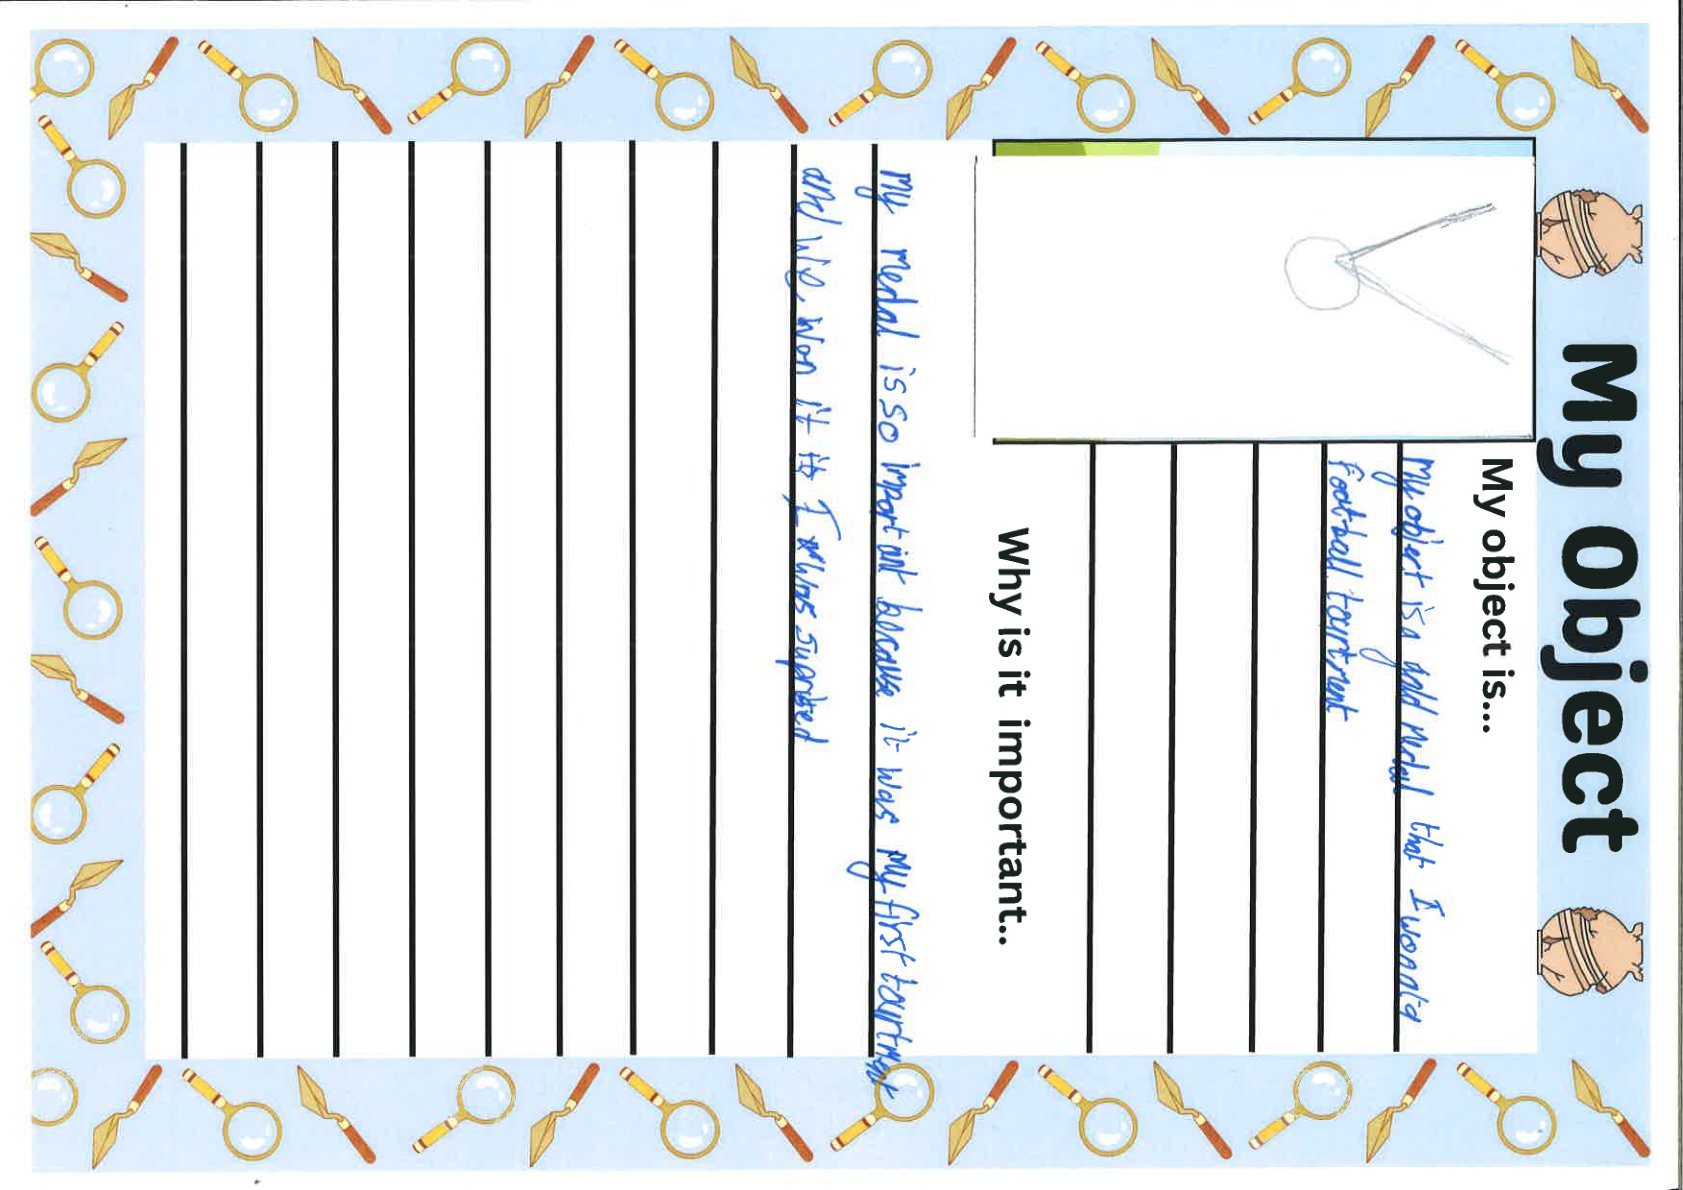 My Object
My object is...
My object is a gold medal that I won at a
Football tourtment
Why is it important..
my medal is so important because it was my first tourtment
and we won it it I was suprised